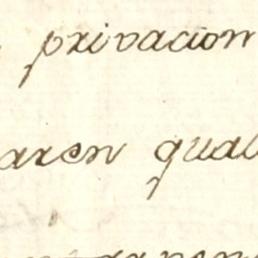 privacion
aren qual